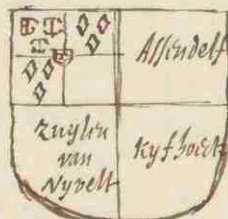 Assendelf
Zuylen
van
Nyvelt
Kyfhoeck